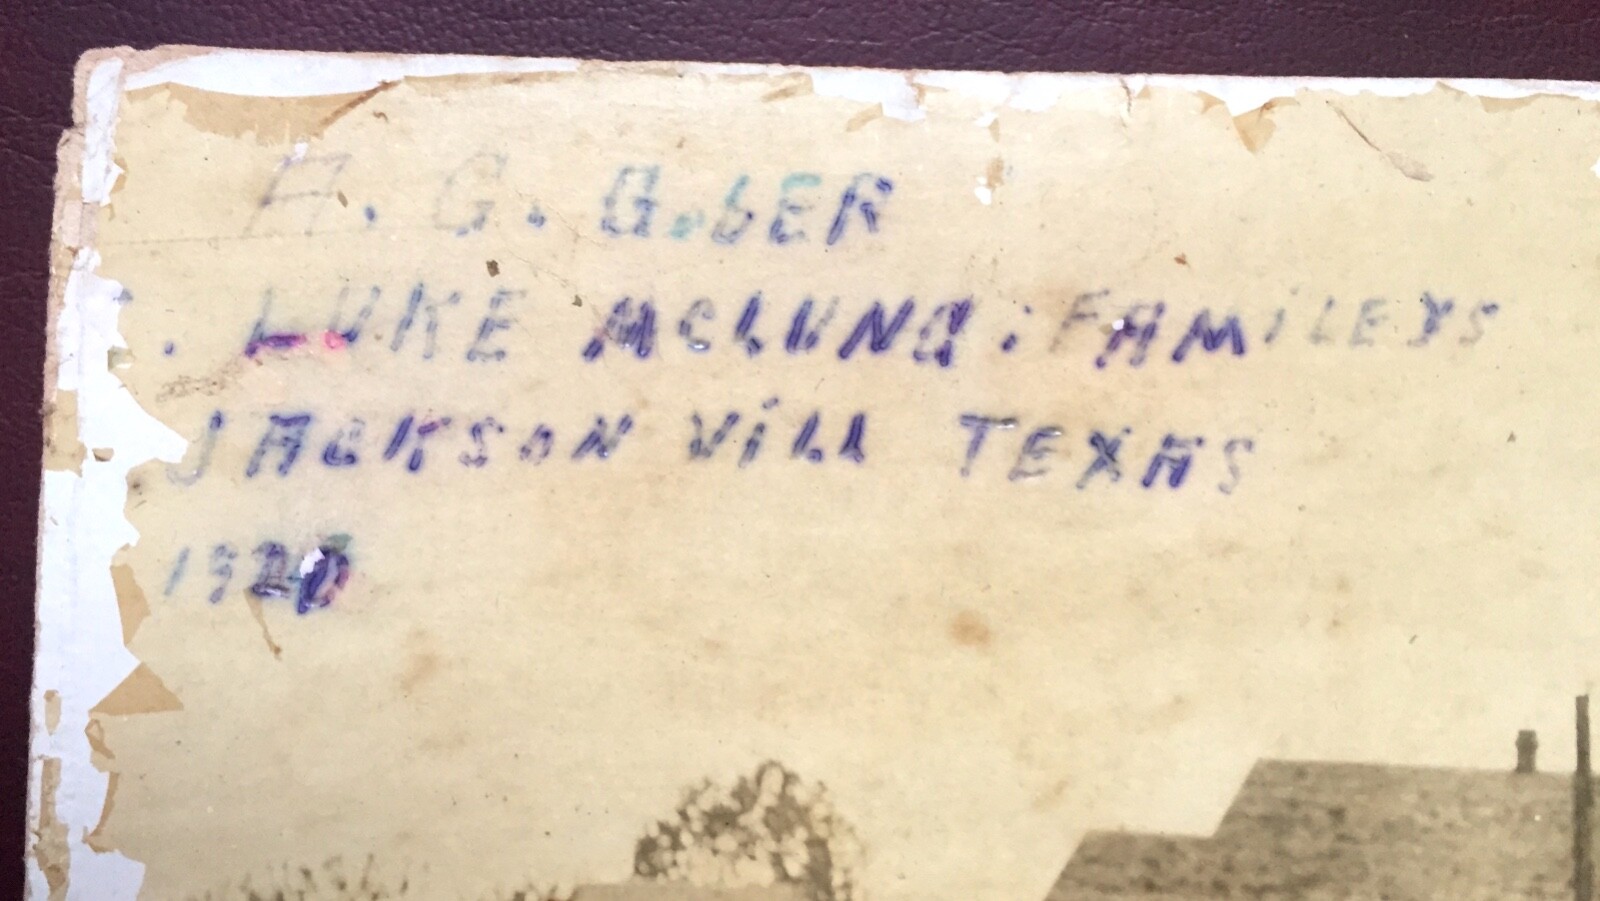 A. G. GobER
. LUKE McLUNG : FAMiLEYS
JACKSoN ViLL TEXAS
1920